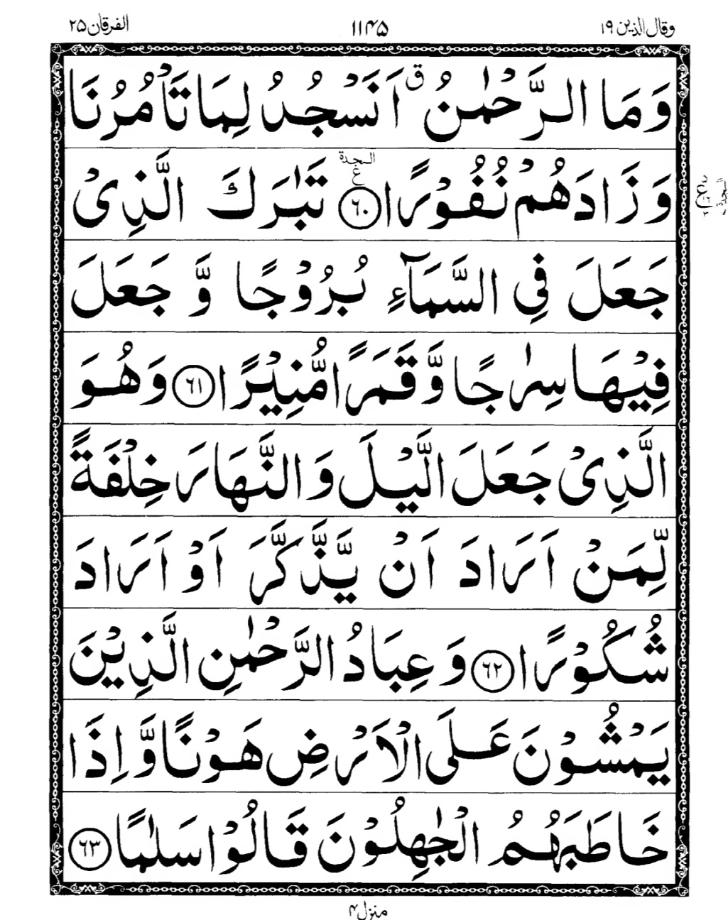 وقال الذین ١٩ ١١٤٥ الفرقان ٢٥
وَمَا الرَّحْمٰنُ ۗ اَنَسْجُدُ لِمَا تَاْمُرُنَا
وَزَادَهُمْ نُفُوْرًا ۩ ﴿٦٠﴾ تَبٰرَكَ الَّذِیْ
السجدة
ع
جَعَلَ فِی السَّمَآءِ بُرُوْجًا وَّ جَعَلَ
فِیْهَا سِرٰجًا وَّقَمَرًا مُّنِیْرًا ﴿٦١﴾ وَهُوَ
الَّذِیْ جَعَلَ الَّیْلَ وَالنَّهَارَ خِلْفَةً
لِّمَنْ اَرَادَ اَنْ یَّذَّكَّرَ اَوْ اَرَادَ
شُكُوْرًا ﴿٦٢﴾ وَعِبَادُ الرَّحْمٰنِ الَّذِیْنَ
یَمْشُوْنَ عَلَی الْاَرْضِ هَوْنًا وَّاِذَا
خَاطَبَهُمُ الْجٰهِلُوْنَ قَالُوْا سَلٰمًا ﴿٦٣﴾
منزل ۴